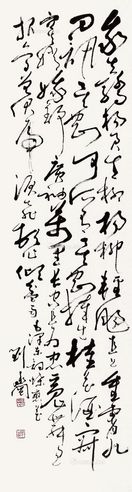 我失骄杨君失柳杨柳轻飏直上重霄九
问讯吴刚何所有吴刚捧出桂花酒寂
寞嫦娥舒广袖万里长空且为忠魂舞忽
报人间曾伏虎泪飞顿作倾盆雨毛泽东词蝶恋花
刘